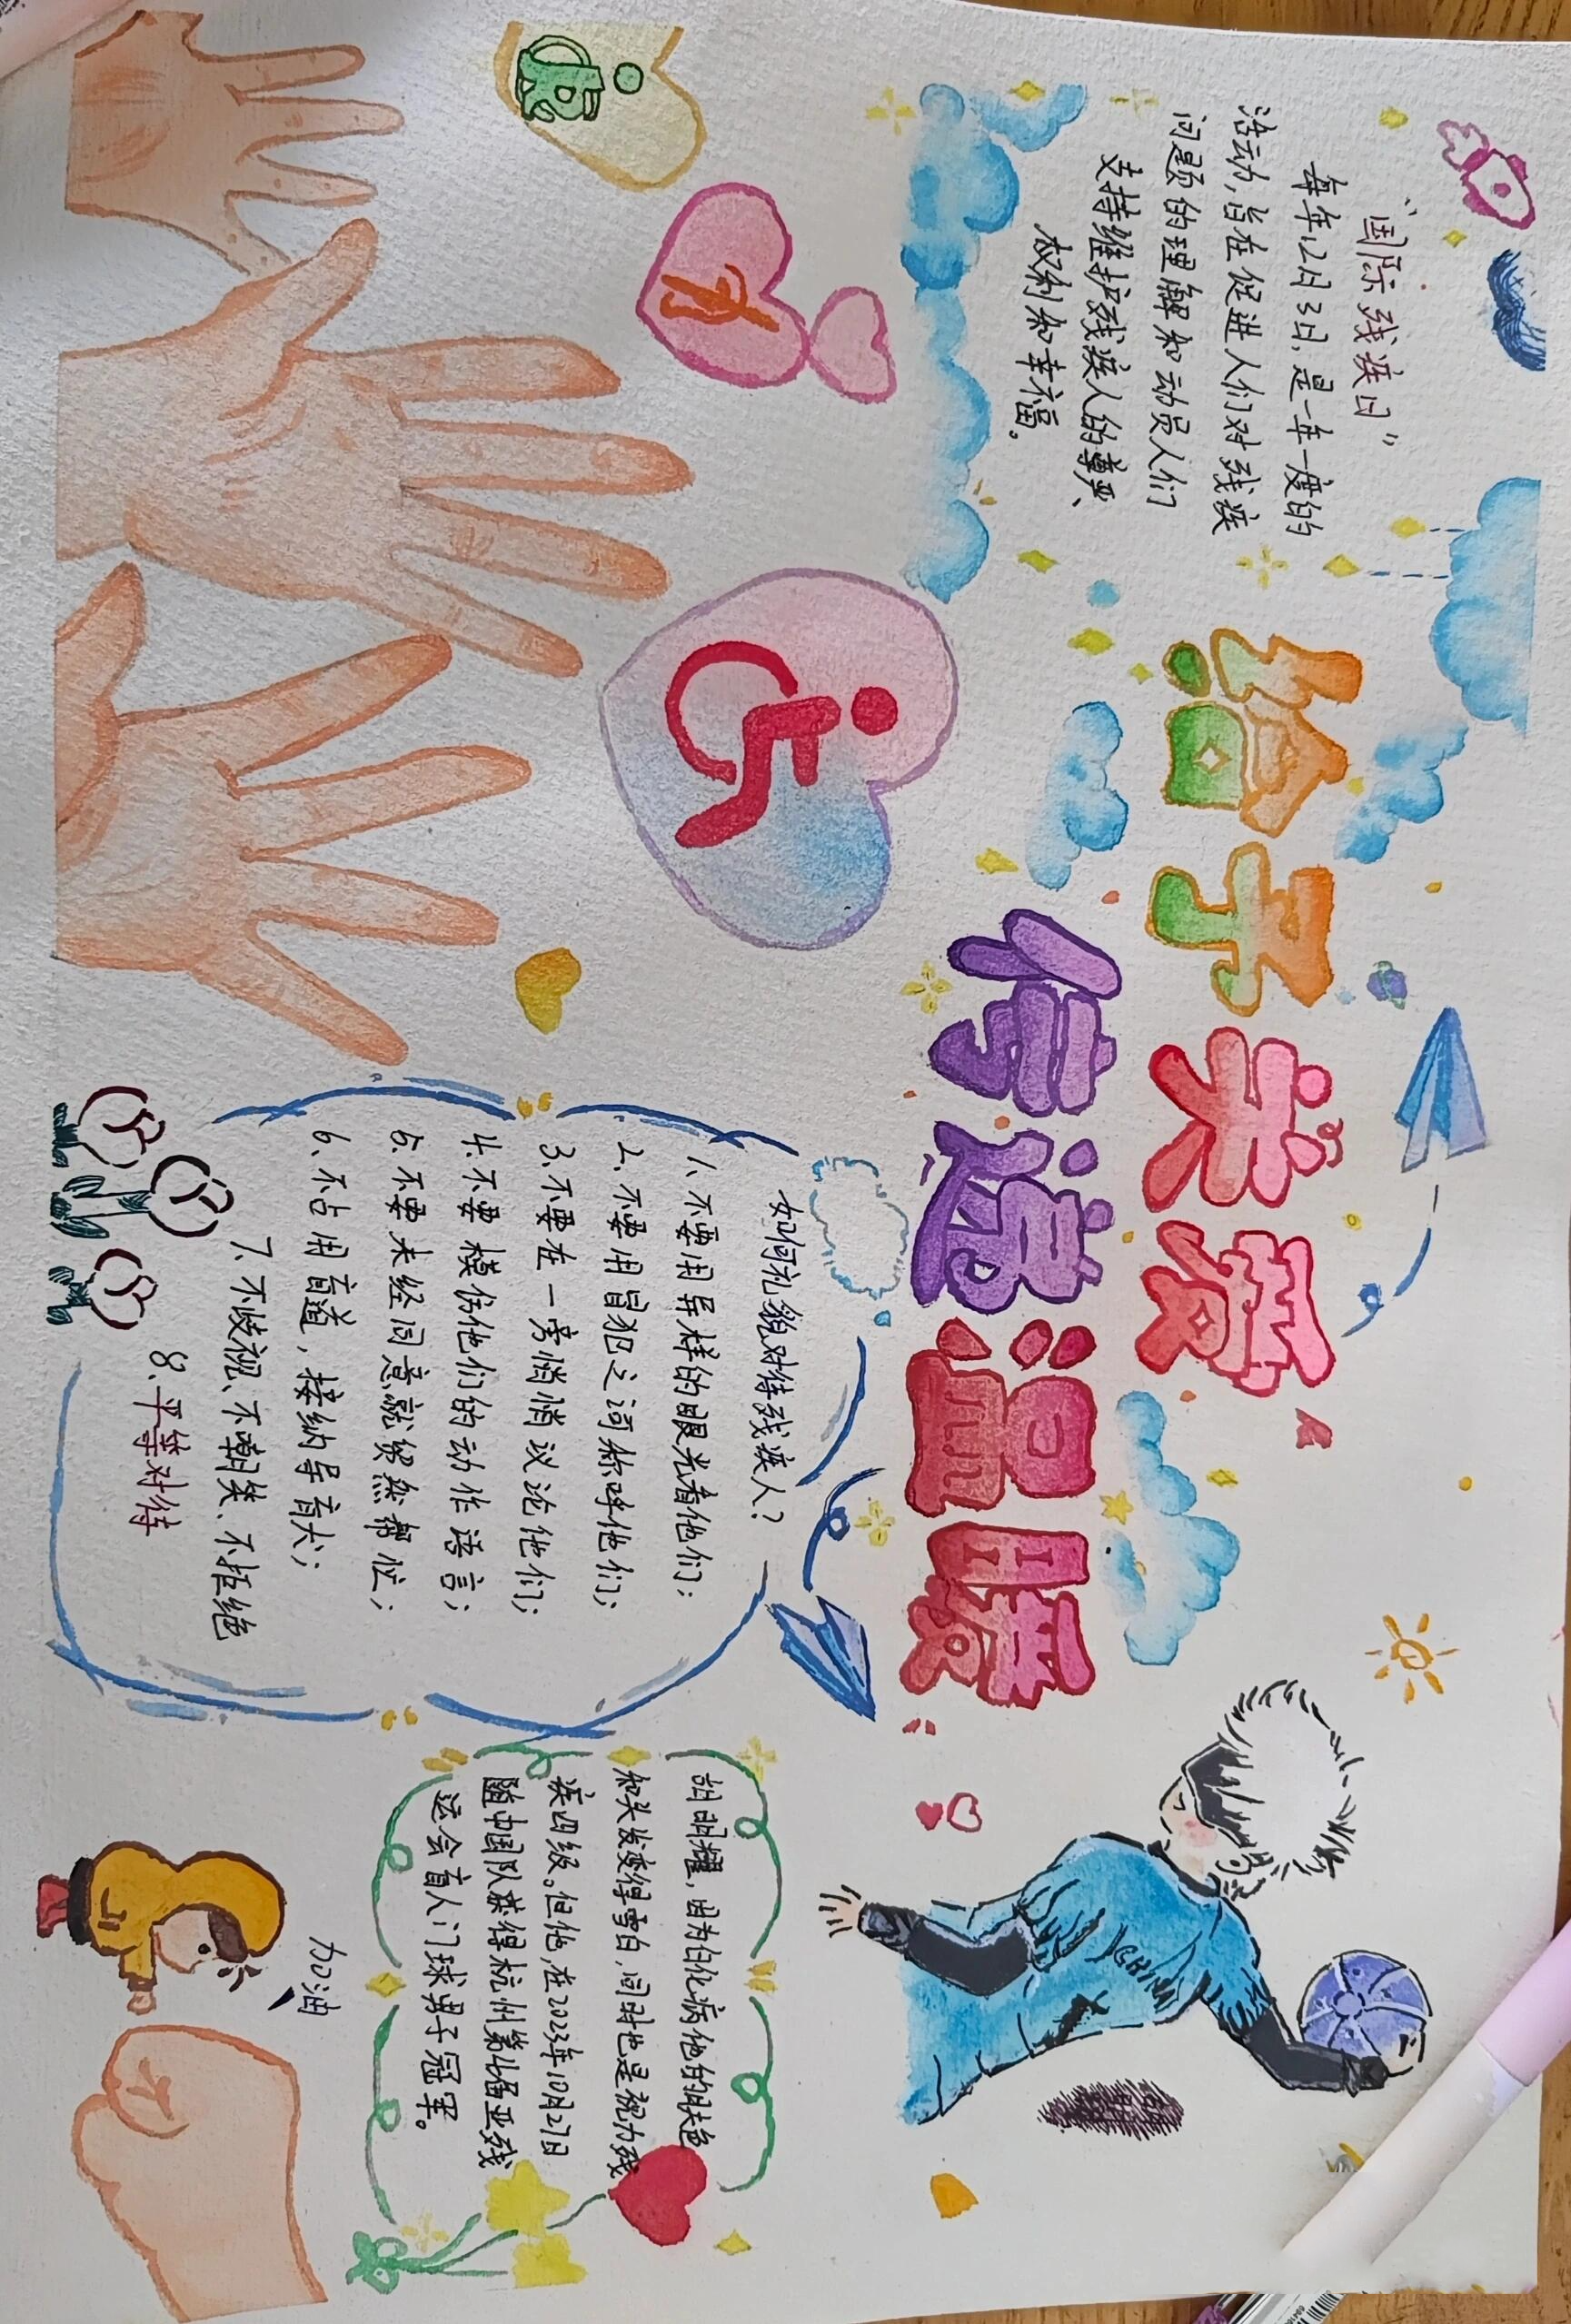 给予关爱
传递温暖
“国际残疾日”
每年12月3日,是一年一度的
活动,旨在促进人们对残疾
问题的理解和动员人们
支持维护残疾人的尊严、
权利和幸福。
如何礼貌对待残疾人？
1、不要用异样的眼光看他们；
2、不要用冒犯之词称呼他们；
3、不要在一旁悄悄议论他们；
4、不要模仿他们的动作语言；
5、不要未经同意就贸然帮忙；
6、不占用盲道，接纳导盲犬；
7、不歧视、不嘲笑、不拒绝
8、平等对待
胡明耀，因为白化病他的肤色
和头发变得雪白，同时也是视力残
疾四级。但他,在2023年10月27日
随中国队获得杭州第4届亚残
运会盲人门球男子冠军。
加油